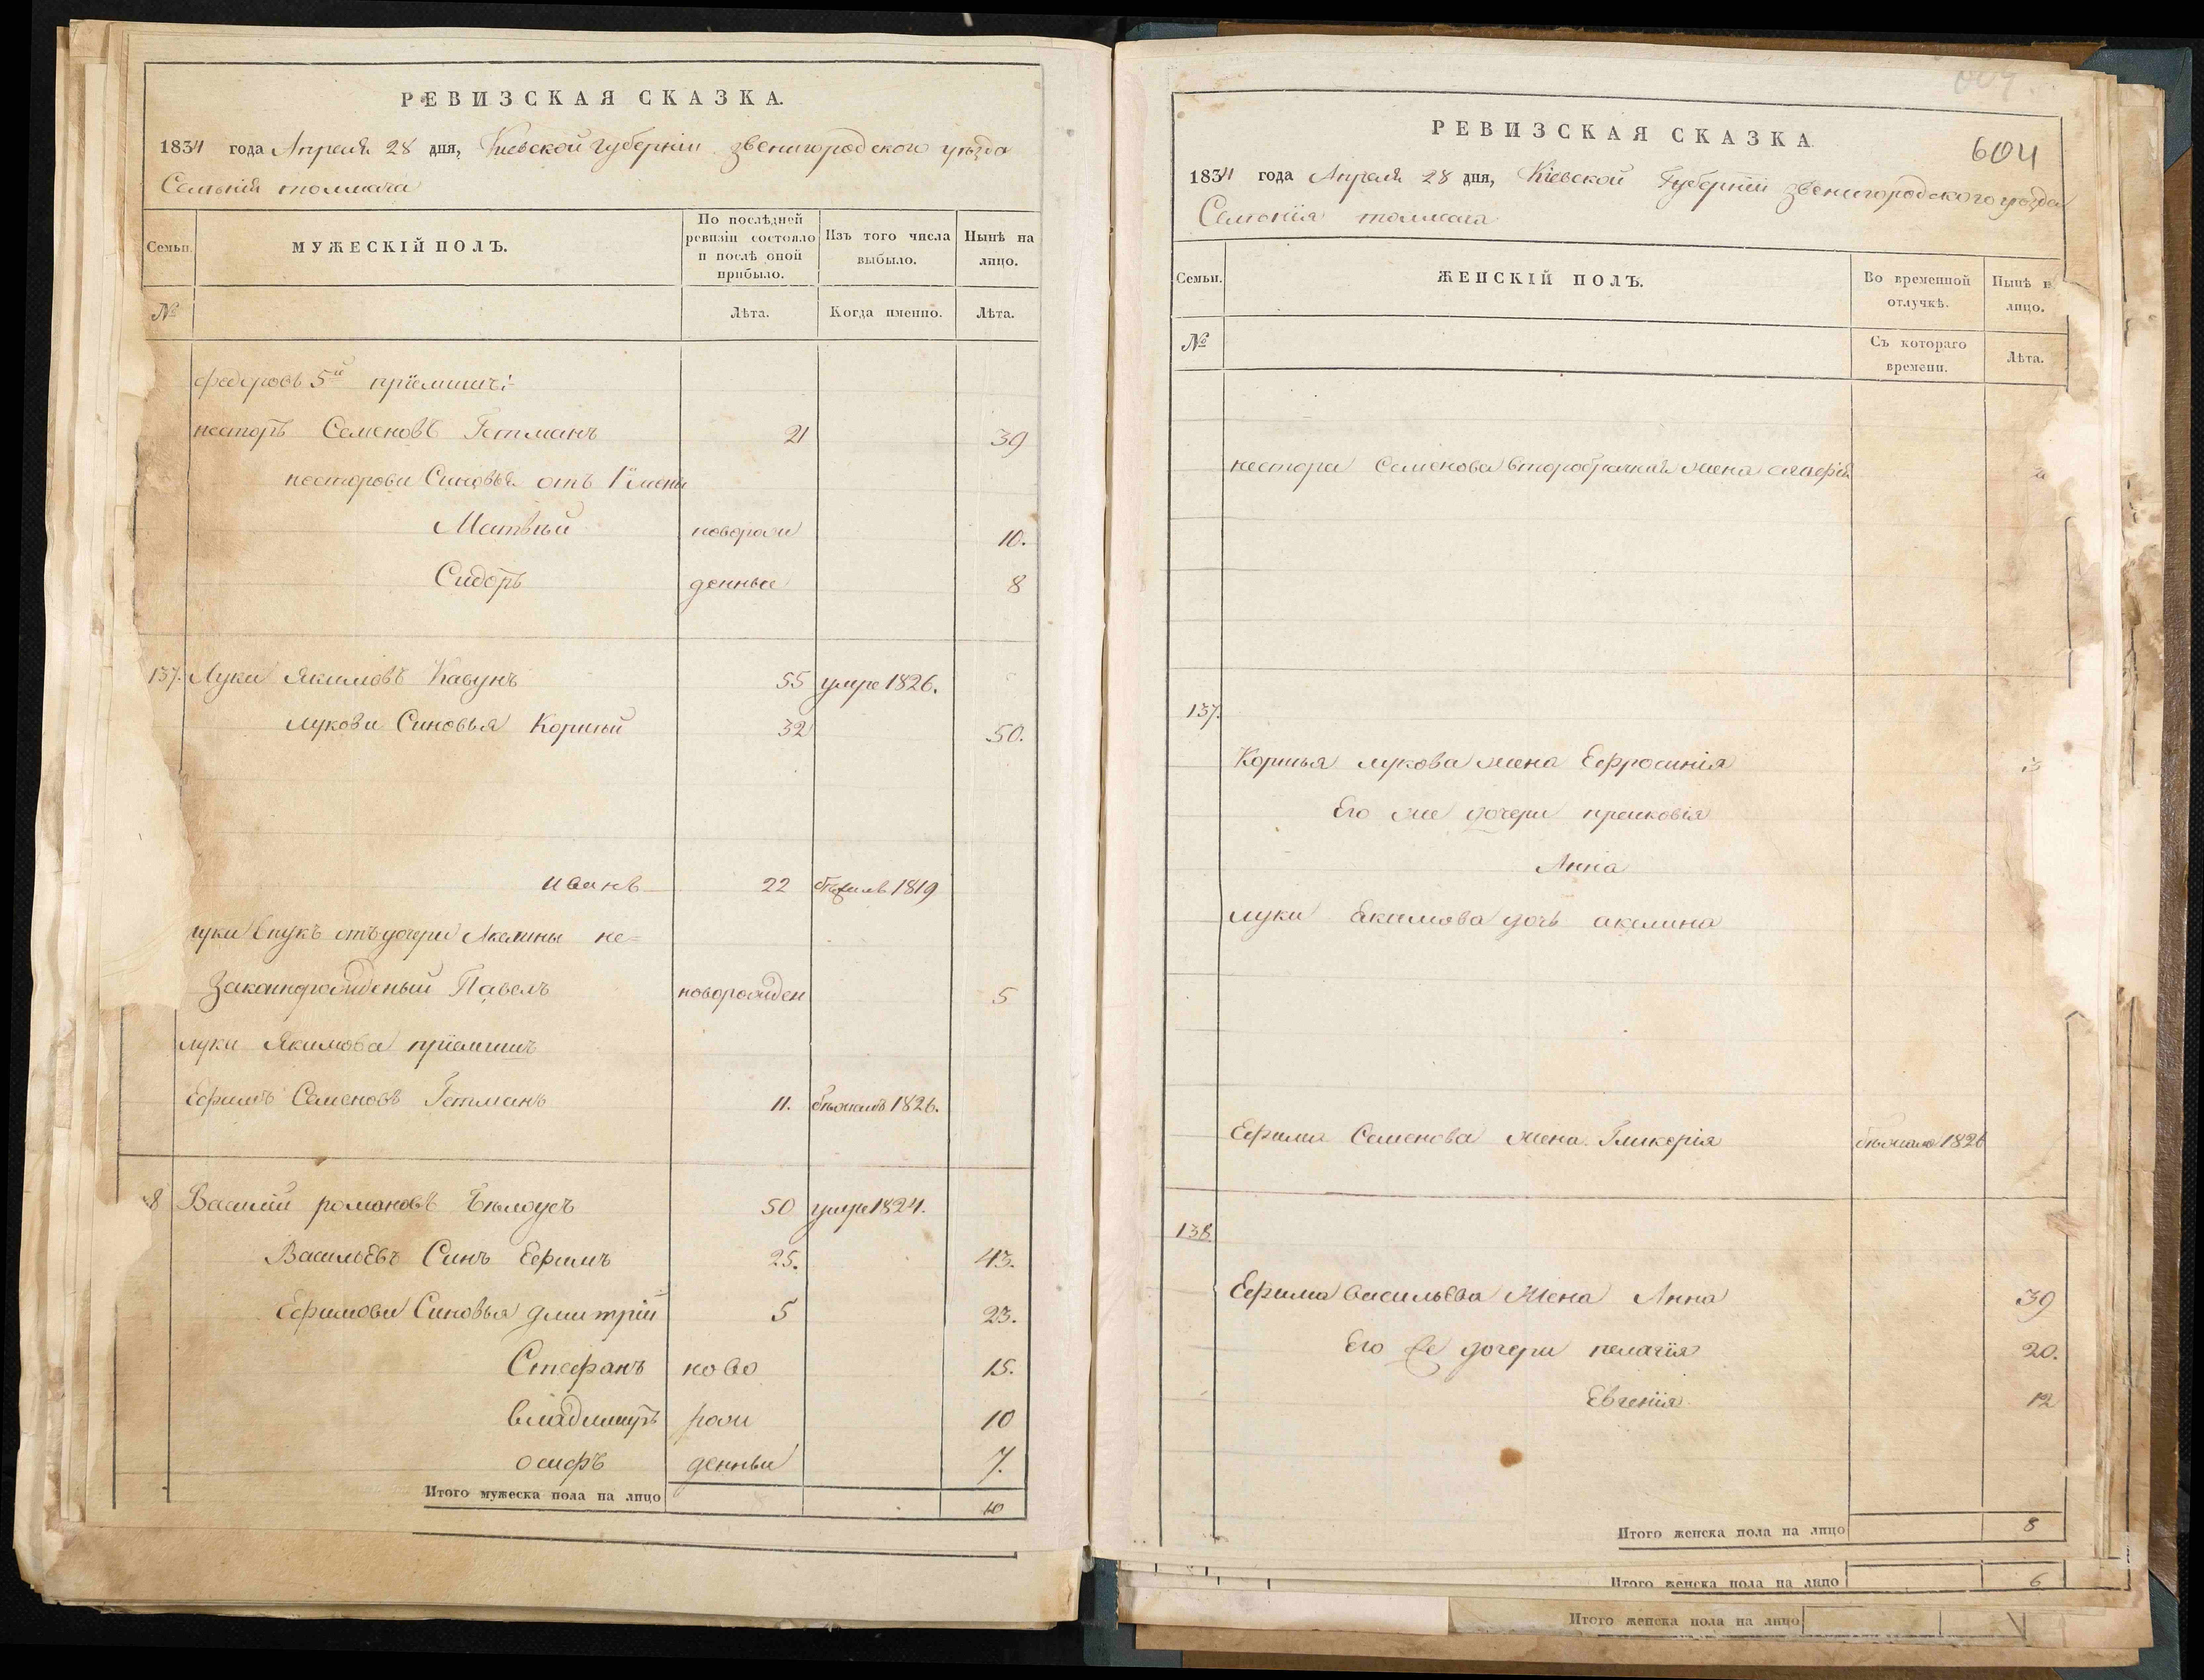 РЕВИЗСКАЯ СКАЗКА.
1834 года Апреля 28 дня, Киевской Губерніи звенигородского уѣзда
Селенія толмача
Семьи. МУЖЕСКІЙ ПОЛЪ. По послѣдней ревизіи состояло и послѣ оной прибыло. Изъ того числа выбыло. Нынѣ на лицо.
№ Лѣта. Когда именно. Лѣта.
федоровъ 5й пріемишъ:
несторъ Семеновъ Гетманъ 21 39
несторови Синовья отъ 1й жени
Матвѣй новорож 10.
Сидоръ денныи 8
137. Луки Якимовъ Кавунъ 55 умре 1826.
лукови Синовья Корнѣй 32 50.
иванъ 22 1819
луки внукъ отъ дочери Акелины не=
законнорожденый Павелъ новорожден 5
луки Якимова пріемишъ
Ефимъ Семеновъ Гетманъ 11. бѣжалъ 1826.
8 Василій романовъ Бѣлоусъ 50 умре 1824.
Васильевъ Синъ Ефимъ 25. 43.
Ефимови Синовья дмитрій 5 23.
Стефанъ ново 15.
владимиръ рож 10
осифъ денныи 7.
Итого мужеска пола на лицо 10
604
РЕВИЗСКАЯ СКАЗКА
1834 года Апреля 28 дня, Кіевской Губерніи звенигородского уѣзда
Селенія толмача
Семьи. ЖЕНСКІЙ ПОЛЪ. Во временной отлучкѣ. Нынѣ н лицо.
№ Съ котораго времени. Лѣта.
нестора Семенова второбрачная жена
137.
Корнѣя лукова жена Ефросинія
Его же дочери прасковія
Анна
луки Екимова дочь акелина
Ефима Семенова жена Гликерія бѣжала 1826
138.
Ефима васильева Жена Анна 39
Его же дочери пелагія 20.
Евгенія 12
Итого женска пола на лицо 8
Итого женска пола на лицо 6
Итого женска пола на лицо